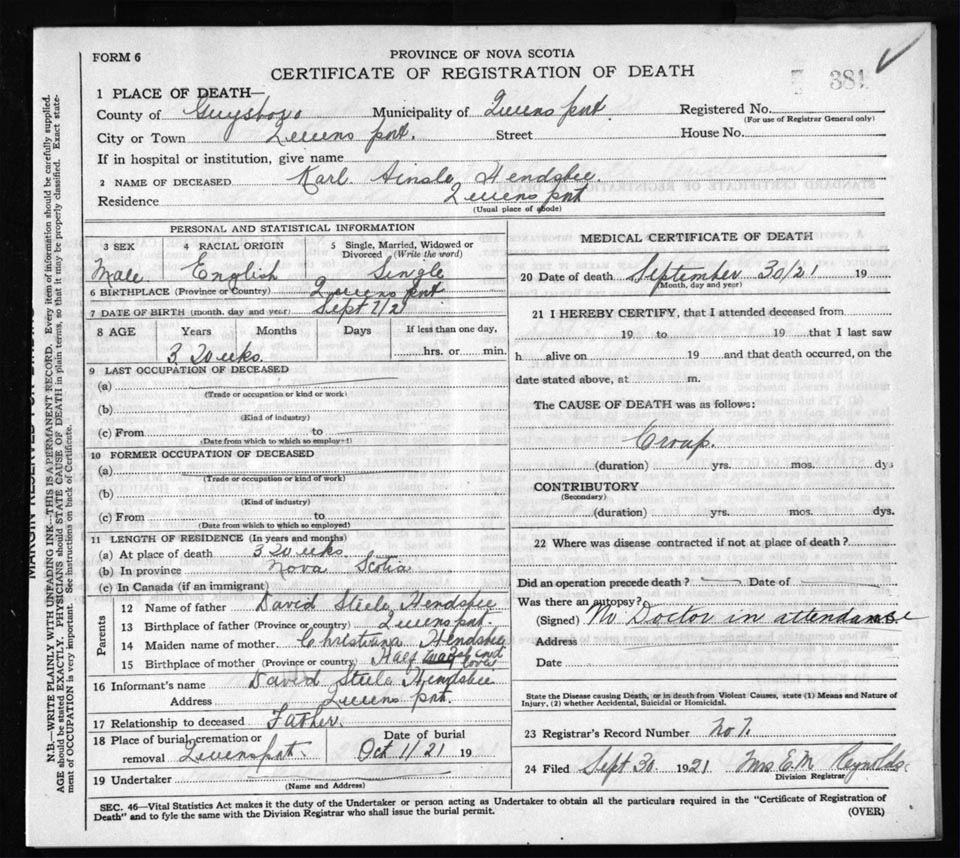 FORM 6
PROVINCE OF NOVA SCOTIA
CERTIFICATE OF REGISTRATION OF DEATH
381
1 PLACE OF DEATH—
County of Guysboro Municipality of Queens port Registered No.
(For use of Registrar General only)
City or Town Queens port. Street House No.
If in hospital or institution, give name
2 NAME OF DECEASED Karl Ainsle Hendsbee
Residence Queens port
(Usual place of abode)
PERSONAL AND STATISTICAL INFORMATION
3 SEX 4 RACIAL ORIGIN 5 Single, Married, Widowed or Divorced (Write the word)
Male English Single
6 BIRTHPLACE (Province or Country) Queens port
7 DATE OF BIRTH (month, day and year) Sept 7/21
8 AGE Years Months Days If less than one day,
3 Weeks. hrs. or min.
9 LAST OCCUPATION OF DECEASED
(a)
(Trade or occupation or kind or work)
(b)
(Kind of industry)
(c) From to
(Date from which to which so employed)
10 FORMER OCCUPATION OF DECEASED
(a)
(Trade or occupation or kind of work)
(b)
(Kind of industry)
(c) From to
(Date from which to which so employed)
11 LENGTH OF RESIDENCE (In years and months)
(a) At place of death 3 Weeks
(b) In province Nova Scotia
(c) In Canada (if an immigrant)
Parents
12 Name of father David Steele Hendsbee
13 Birthplace of father (Province or country) Queens port.
14 Maiden name of mother Christiana Hendsbee
15 Birthplace of mother (Province or country) Half cove
16 Informant's name David Steele Hendsbee
Address Queens port.
17 Relationship to deceased Father.
18 Place of burial, cremation or removal Queensport. Date of burial Oct 1/21 19
19 Undertaker
(Name and Address)
MEDICAL CERTIFICATE OF DEATH
20 Date of death September 30/21 19
(Month, day and year)
21 I HEREBY CERTIFY, that I attended deceased from
19 to 19 that I last saw
h alive on 19 and that death occurred, on the
date stated above, at m.
The CAUSE OF DEATH was as follows:
Croup.
(duration) yrs. mos. dys
CONTRIBUTORY
(Secondary)
(duration) yrs. mos. dys.
22 Where was disease contracted if not at place of death?
Did an operation precede death? Date of
Was there an autopsy?
(Signed) No Doctor in attendance
Address
Date
State the Disease causing Death, or in death from Violent Causes, state (1) Means and Nature of
Injury, (2) whether Accidental, Suicidal or Homicidal.
23 Registrar's Record Number No 7.
24 Filed Sept 30 1921 Mrs E. M Reynolds
Division Registrar
SEC. 46—Vital Statistics Act makes it the duty of the Undertaker or person acting as Undertaker to obtain all the particulars required in the "Certificate of Registration of
Death" and to fyle the same with the Division Registrar who shall issue the burial permit.
(OVER)
MARGIN RESERVED FOR
N.B.—WRITE PLAINLY WITH UNFADING INK—THIS IS A PERMANENT RECORD. Every item of information should be carefully supplied.
AGE should be stated EXACTLY. PHYSICIANS should STATE CAUSE OF DEATH in plain terms, so that it may be properly classified. Exact state-
ment of OCCUPATION is very important. See instructions on back of Certificate.